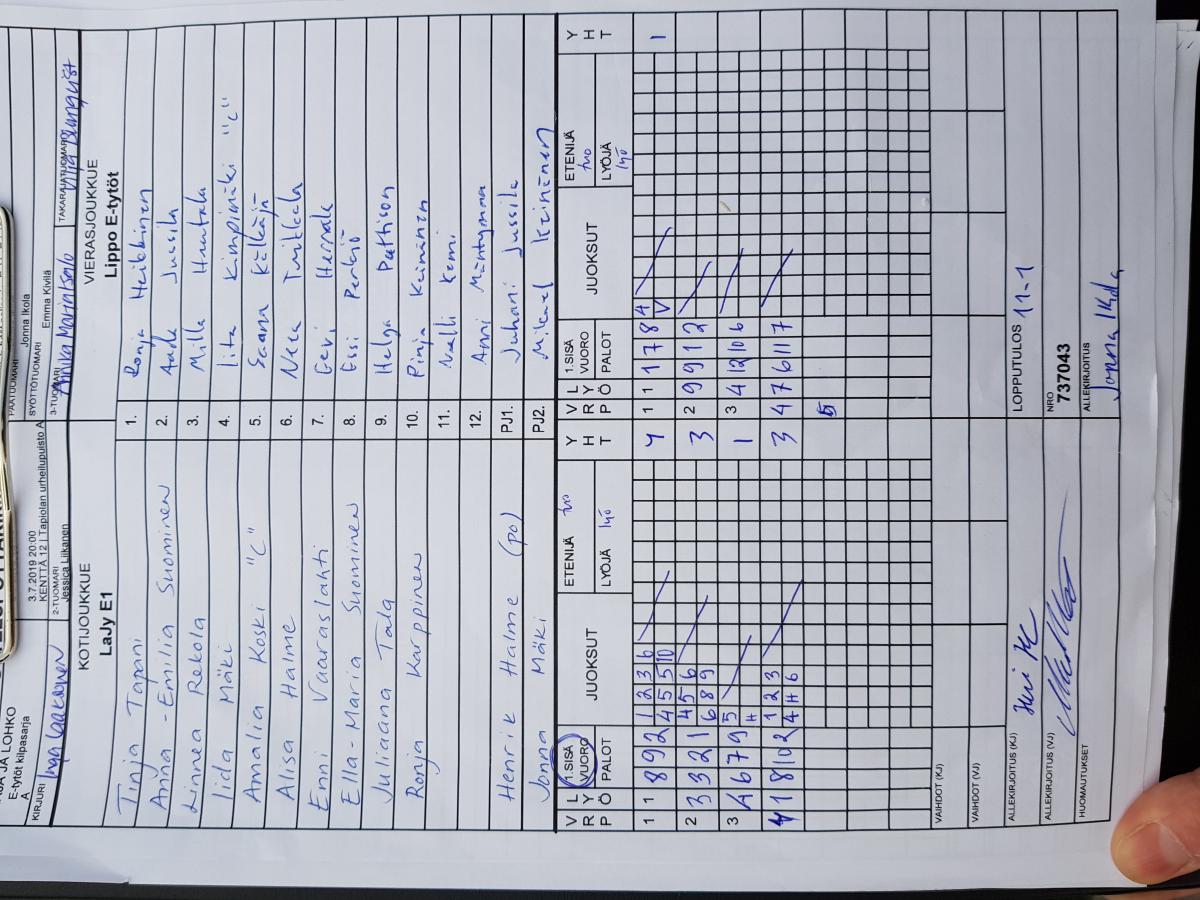 SA JA LOHKO
E-tytöt kilpasarja
A
3.7.2019 20:00
KENTTÄ 12 | Tapiolan urheilupuisto A
PÄÄTUOMARI Jonna Ikola
SYÖTTÖTUOMARI Emma Kivilä
KIRJURI Inga Laaksonen
2-TUOMARI Jessica Liikanen
3-TUOMARI Annika Marintsalo
TAKARAJATUOMARI
KOTIJOUKKUE
LaJy E1
VIERASJOUKKUE
Lippo E-tytöt
Tinja Tapani 1. Ronja Heikkinen
Anna-Emilia Suominen 2. Aada Jussila
Linnea Rekola 3. Milla Huutala
Iida Mäki 4. Iita Kimpimäki "C"
Amalia Koski "C" 5. Saana Kälkäjä
Alisa Halme 6. Neea Turkkala
Enni Vaaraslahti 7. Eevi
Ella-Maria Suominen 8. Essi Perkiö
Juliaana Tala 9. Helga Pattison
Ronja Karppinen 10. Pinja Keinänen
11. Noelli Kemi
12. Anni Mäntymaa
Henrik Halme (po) PJ1. Juhani Jussila
Jonna Mäki PJ2. Mikael Keinänen
V R L Y Ö P 1.SISÄ VUORO PALOT JUOKSUT ETENIJÄ tuo LYÖJÄ lyö Y H T
V R L Y Ö P 1.SISÄ VUORO PALOT JUOKSUT ETENIJÄ tuo LYÖJÄ lyö Y H T
1 1 8 9 2 1 2 3 6 4 1 1 1 7 8 4 1
4 5 5 10 V
2 3 3 2 1 4 5 6 3 2 9 9 1 2
6 8 9
3 A 6 7 9 5 1 3 4 12 10 6
H
4 1 8 10 2 1 2 3 3 4 7 6 11 7
4 H 6
5
VAIHDOT (KJ)
VAIHDOT (VJ)
ALLEKIRJOITUS (KJ)
LOPPUTULOS 11-1
ALLEKIRJOITUS (VJ)
NRO
737043
HUOMAUTUKSET
ALLEKIRJOITUS
Jonna Ikola